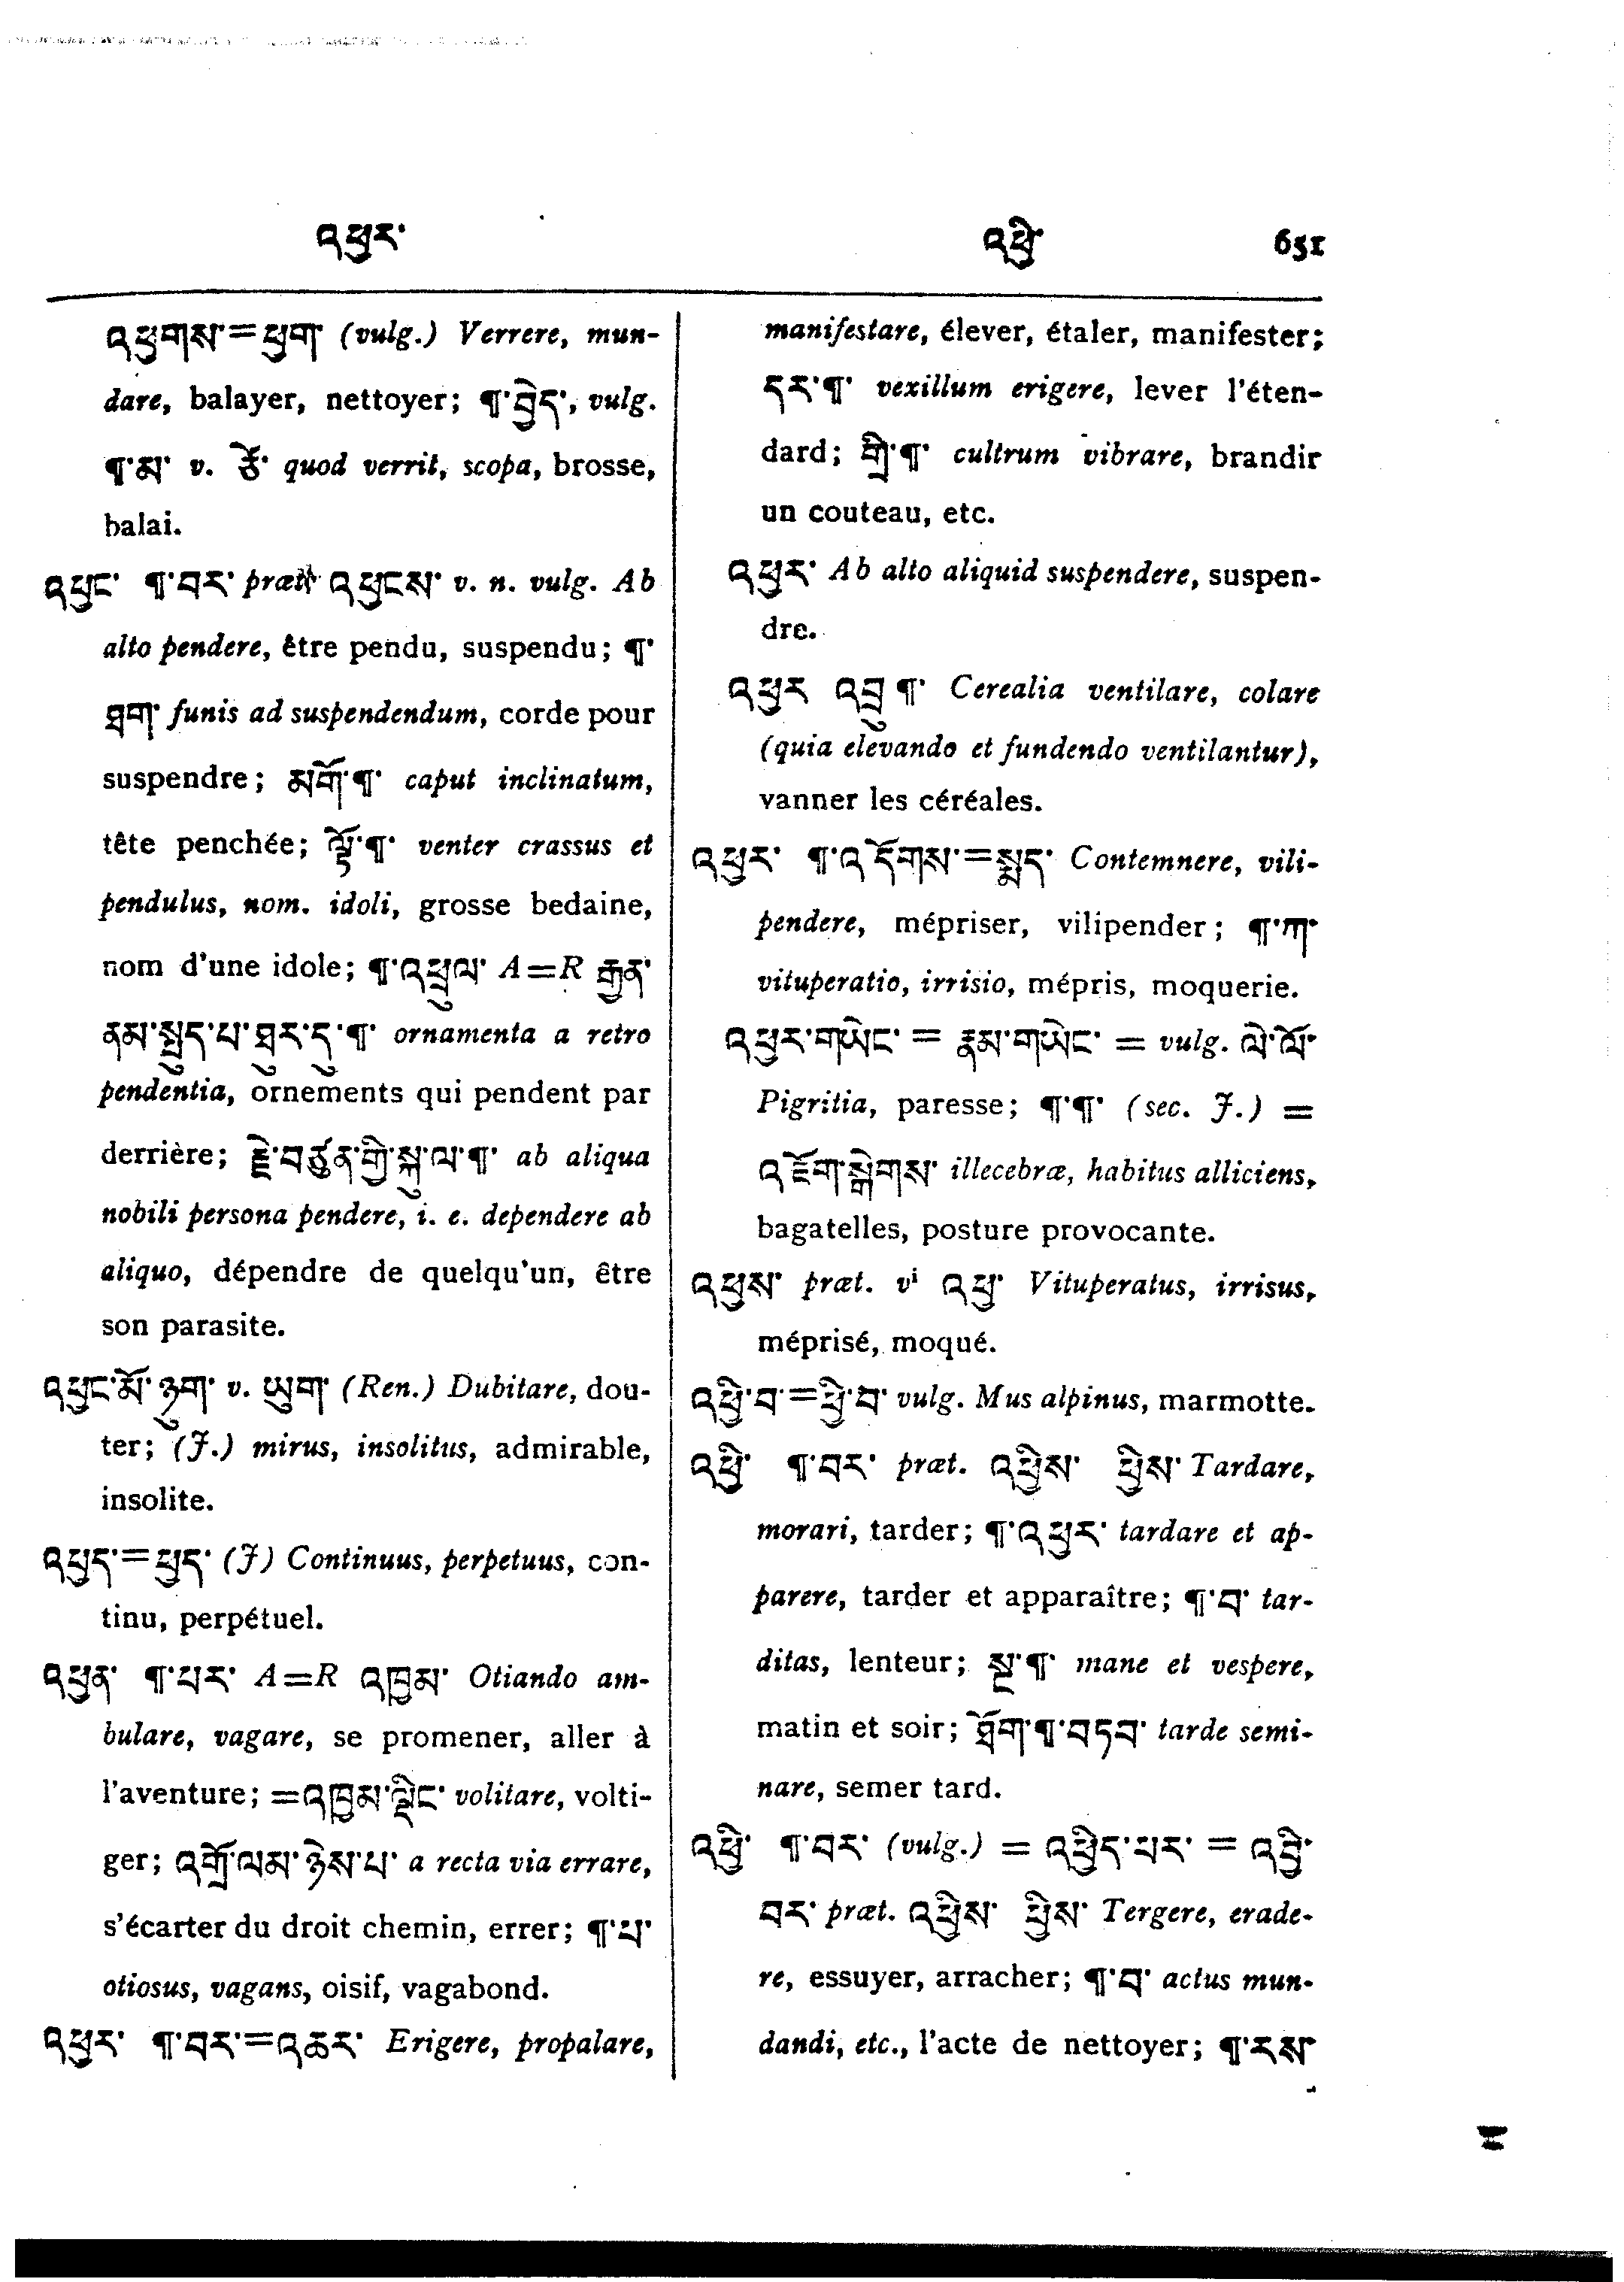 འཕུར་ འཕྱི་ 651
འཕྱགས་=ཕྱག་ (vulg.) Verrere, mun-
dare, balayer, nettoyer; ¶་བྱེད་, vulg.
¶་མ་ v. ཙེ་ quod verrit, scopa, brosse,
balai.
འཕྱང་ ¶་བར་ præt. འཕྱངས་ v. n. vulg. Ab
alto pendere, être pendu, suspendu; ¶་
ཐག་ funis ad suspendendum, corde pour
suspendre; མགོ་¶་ caput inclinatum,
tête penchée; ལྟོ་¶་ venter crassus et
pendulus, nom. idoli, grosse bedaine,
nom d'une idole; ¶་འཕྲུལ་ A=R རྒྱན་
ནམ་སྤྲུད་པ་ཐུར་དུ་¶་ ornamenta a retro
pendentia, ornements qui pendent par
derrière; རྗེ་བཙུན་གྱི་སྐུ་ལ་¶་ ab aliqua
nobili persona pendere, i. e. dependere ab
aliquo, dépendre de quelqu'un, être
son parasite.
འཕྱང་མོ་ཉུག་ v. ཡུག་ (Ren.) Dubitare, dou-
ter; (J.) mirus, insolitus, admirable,
insolite.
འཕྱད་=ཕྱད་ (J) Continuus, perpetuus, con-
tinu, perpétuel.
འཕྱན་ ¶་པར་ A=R འཁྱམ་ Otiando am-
bulare, vagare, se promener, aller à
l'aventure; =འཁྱམ་ལྡིང་ volitare, volti-
ger; འགྲོ་ལམ་ཉེས་པ་ a recta via errare,
s'écarter du droit chemin, errer; ¶་པ་
otiosus, vagans, oisif, vagabond.
འཕྱར་ ¶་བར་=འཆར་ Erigere, propalare,
manifestare, élever, étaler, manifester;
དར་¶་ vexillum erigere, lever l'éten-
dard; གྲི་¶་ cultrum vibrare, brandir
un couteau, etc.
འཕྱར་ Ab alto aliquid suspendere, suspen-
dre.
འཕྱར འབྲུ ¶་ Cerealia ventilare, colare
(quia elevando et fundendo ventilantur),
vanner les céréales.
འཕྱར་ ¶་འདོགས་=སྨད་ Contemnere, vili-
pendere, mépriser, vilipender; ¶་ཀ་
vituperatio, irrisio, mépris, moquerie.
འཕྱར་གཡེང་ = རྣམ་གཡེང་ = vulg. ལེ་ལོ་
Pigritia, paresse; ¶་¶་ (sec. J.) =
འཇོག་སྒེགས་ illecebræ, habitus alliciens,
bagatelles, posture provocante.
འཕྱས་ præt. vⁱ འཕྱ་ Vituperatus, irrisus,
méprisé, moqué.
འཕྱི་བ་=ཕྱི་བ་ vulg. Mus alpinus, marmotte.
འཕྱི་ ¶་བར་ præt. འཕྱིས་ ཕྱིས་ Tardare,
morari, tarder; ¶་འཕྱར་ tardare et ap-
parere, tarder et apparaître; ¶་བ་ tar-
ditas, lenteur; སྔ་¶་ mane et vespere,
matin et soir; ཐོག་¶་བཏབ་ tarde semi-
nare, semer tard.
འཕྱི་ ¶་བར་ (vulg.) = འཕྱིད་པར་ = འབྱི་
བར་ præt. འཕྱིས་ ཕྱིས་ Tergere, erade-
re, essuyer, arracher; ¶་བ་ actus mun-
dandi, etc., l'acte de nettoyer; ¶་རས་